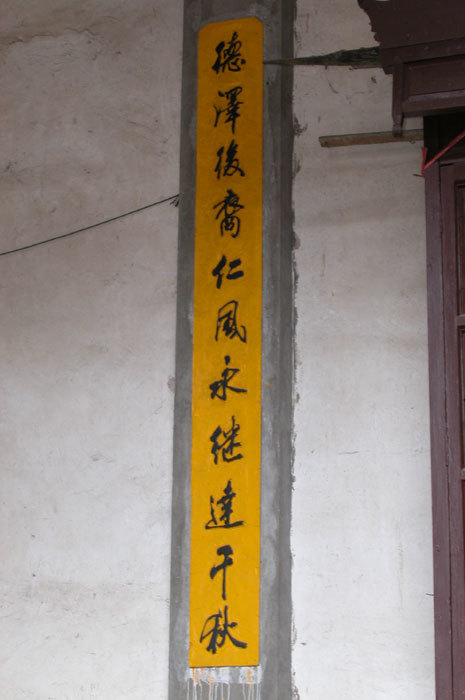 德澤後裔仁風永继達千秋